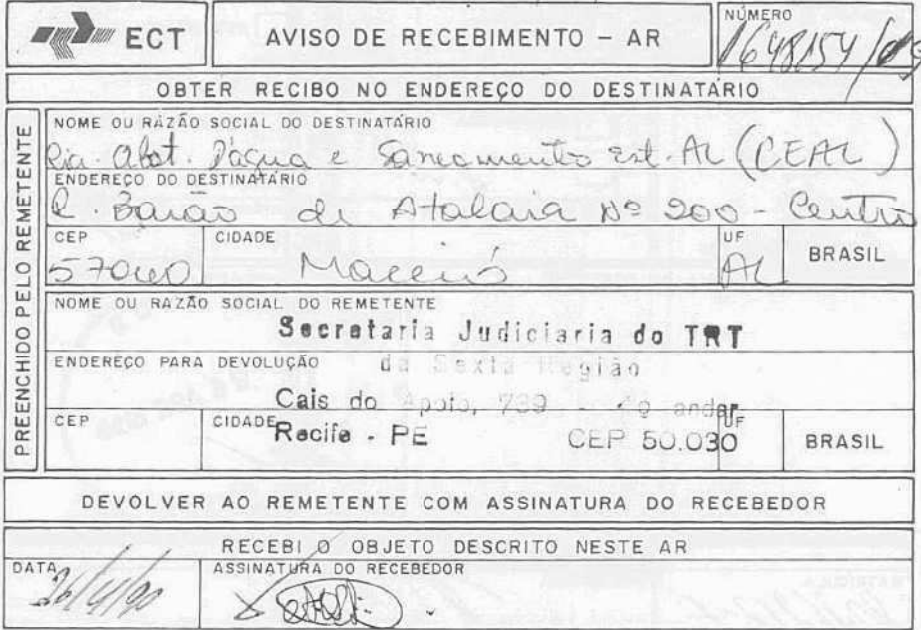 ECT
AVISO DE RECEBIMENTO - AR
NÚMERO
1648154/
OBTER RECIBO NO ENDEREÇO DO DESTINATÁRIO
PREENCHIDO PELO REMETENTE
NOME OU RAZÃO SOCIAL DO DESTINATÁRIO
Cia. Abat. D'água e Saneamento Est. AL (CEAL)
ENDEREÇO DO DESTINATÁRIO
R. Barão de Atalaia Nº 200 - Centro
CEP CIDADE UF
57040 Maceió AL BRASIL
NOME OU RAZÃO SOCIAL DO REMETENTE
Secretaria Judiciaria do TRT
ENDEREÇO PARA DEVOLUÇÃO
da Sexta Região
Cais do Apoio, 739 - 4º andar
CEP CIDADE UF
Recife - PE CEP 50.030 BRASIL
DEVOLVER AO REMETENTE COM ASSINATURA DO RECEBEDOR
RECEBI O OBJETO DESCRITO NESTE AR
DATA ASSINATURA DO RECEBEDOR
26/4/90